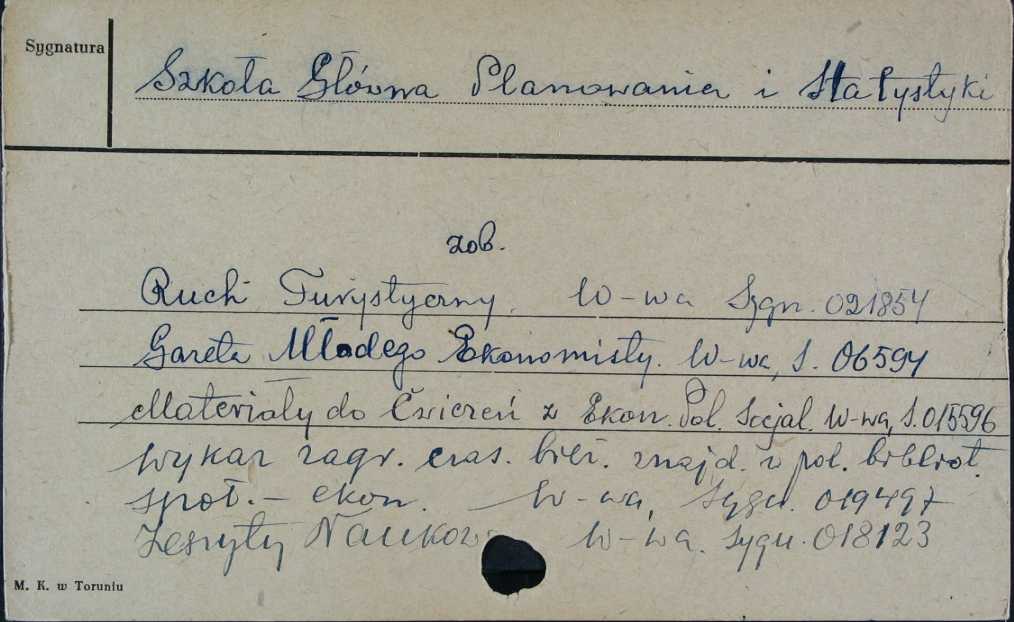 Sygnatura
Szkoła Główna Planowania i Statystyki
zob.
Ruch Turystyczny. W-wa Sygn. 021854
Gazeta Młodego Ekonomisty. W-wa, S. 06594
Materiały do Ćwiczeń z Ekon. Pol. Socjal. W-wa, S. 015596
Wykaz zagr. czas. bież. znajd. w pol. bibliot.
społ. - ekon. W-wa, Sygn. 019497
Zeszyty Naukowe W-wa. Sygn. 018123
M. K. w Toruniu